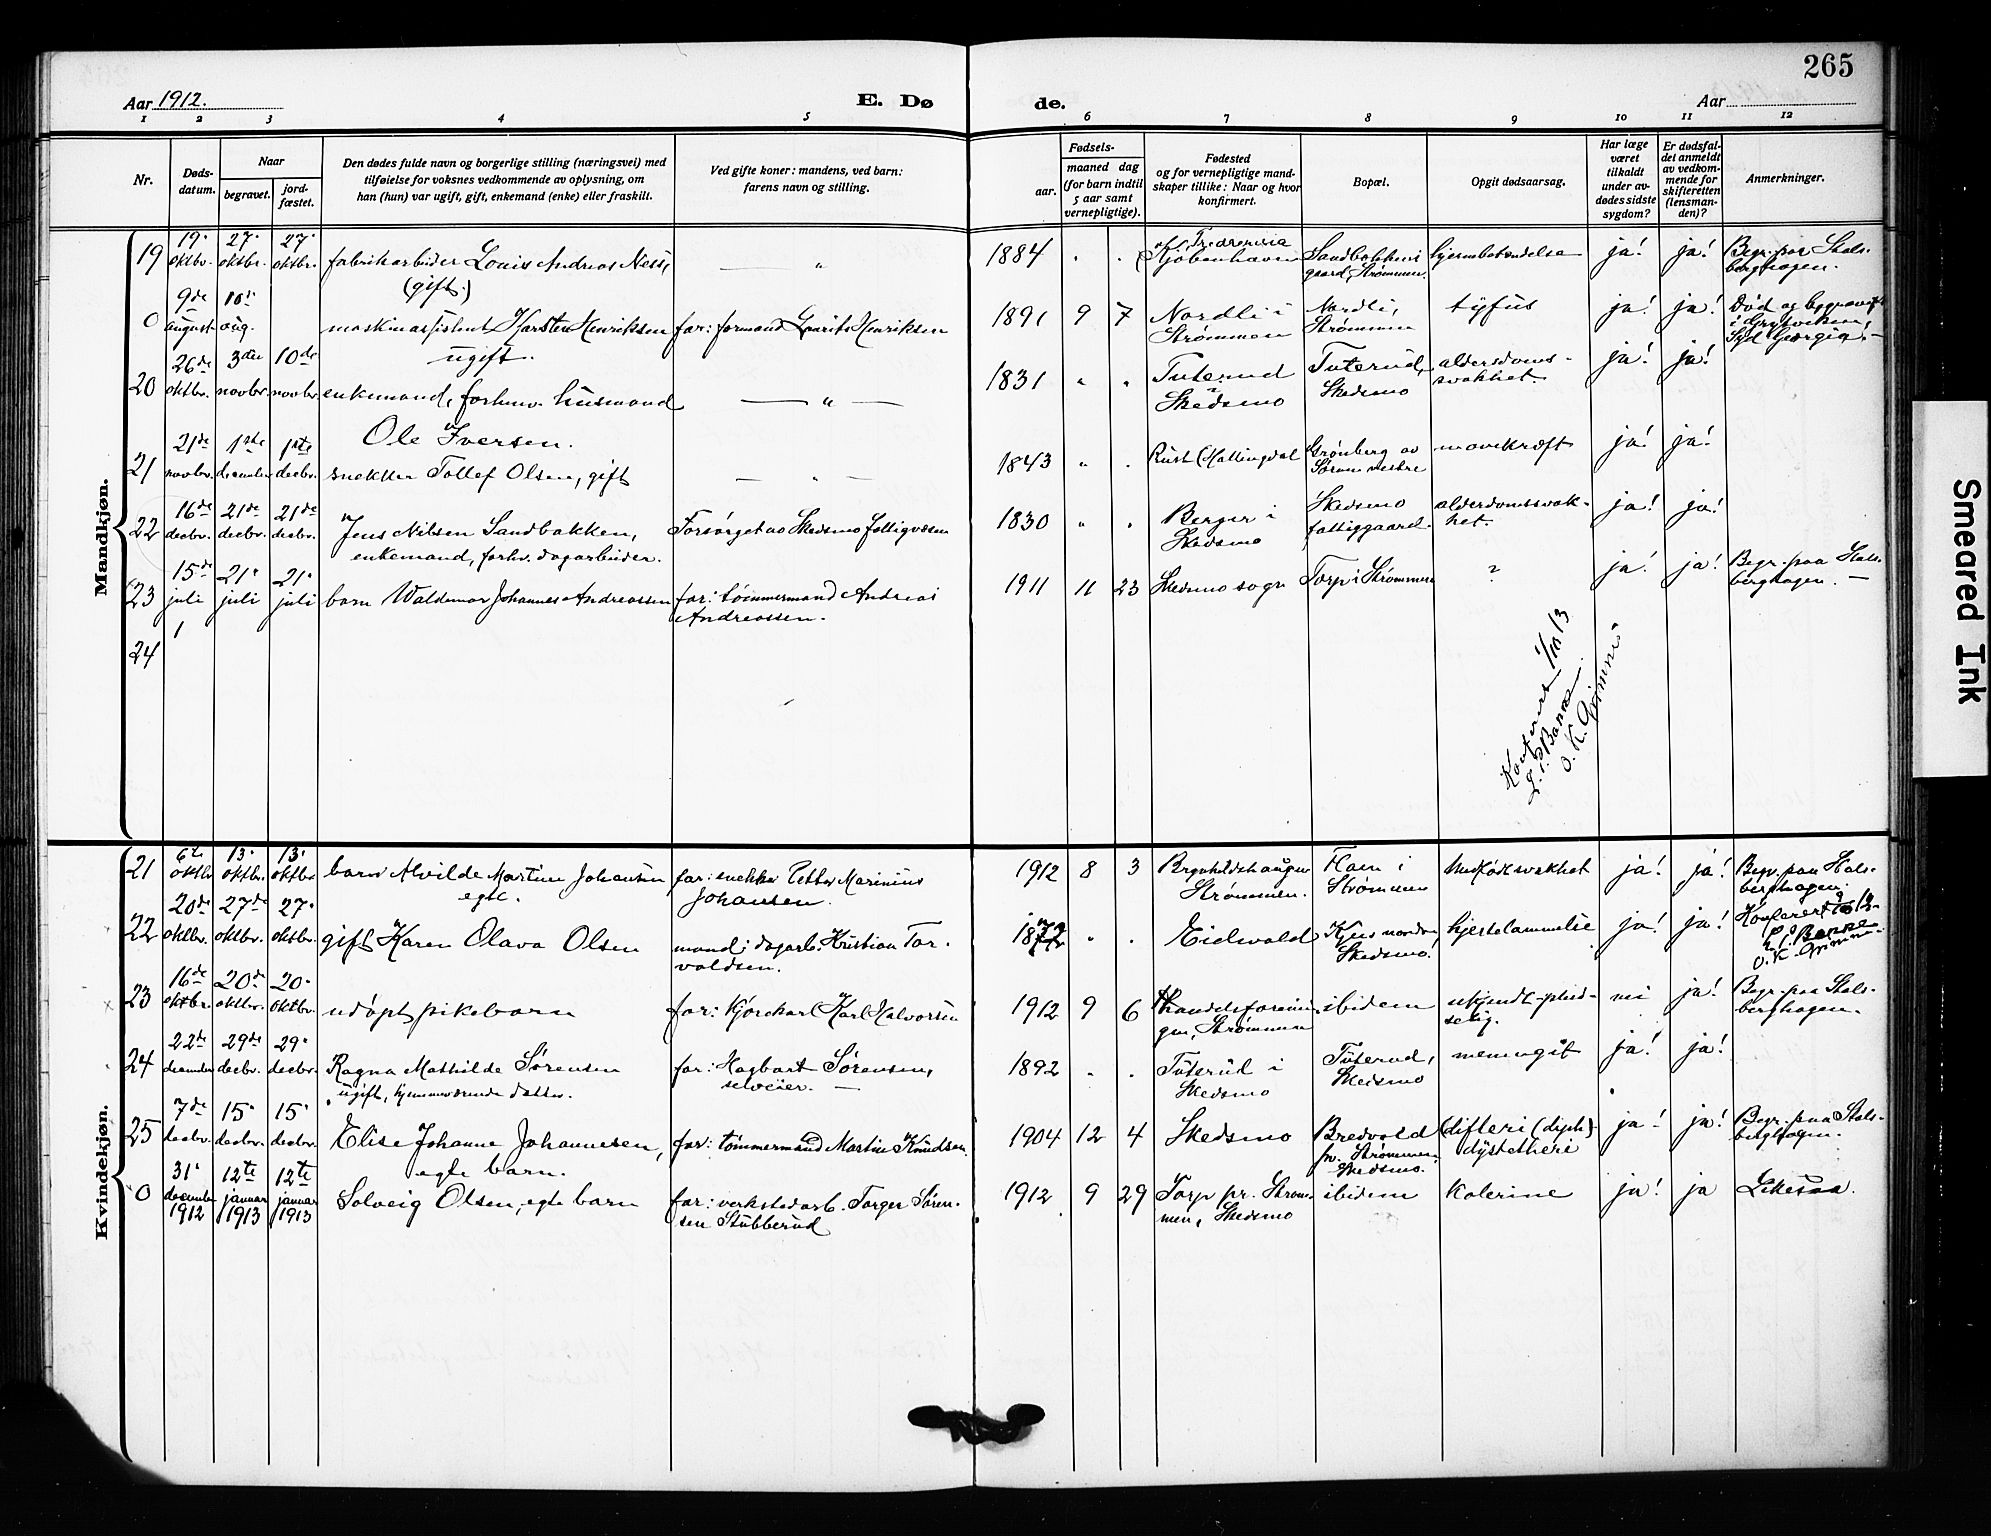 265
Aar 1912.
E. Dø
de.
Aar
1 2 3 4 5 6 7 8 9 10 11 12
Nr.
Døds-
datum.
Naar
begravet.
jord-
fæstet.
Den dødes fulde navn og borgerlige stilling (næringsvei) med
tilføielse for voksnes vedkommende av oplysning, om
han (hun) var ugift, gift, enkemand (enke) eller fraskilt.
Ved gifte koner: mandens, ved barn:
farens navn og stilling.
Fødsels-
aar.
maaned dag
(for barn indtil
5 aar samt
vernepligtige).
Fødested
og for vernepligtige mand-
skaper tillike: Naar og hvor
konfirmert.
Bopæl.
Opgit dødsaarsag.
Har læge
været
tilkaldt
under av-
dødes sidste
sygdom?
Er dødsfal-
det anmeldt
av vedkom-
mende for
skifteretten
(lensman-
den)?
Anmerkninger.
Mandkjøn.
19 19. oktbr. 27. oktbr. 27. oktbr. fabrikarbeider Louis Andreas Ness,
(gift.)
1884 Fredericia
Kjøbenhavn Sandbakken i
gaard, Strømmen hjernebetændelse ja! ja! Begr. paa Stals-
berghagen.
0 9de august 10. aug. maskinassistent Karsten Henriksen
ugift. far: formand Lauritz Henriksen 1891 9 7 Nordli i
Strømmen Nordli,
Strømmen tyfus ja! ja! Død og begravet
i Grytviken,
Syd Georgia.
20 26de oktbr. 3die novbr. 10de novbr. enkemand, forhenv. husmand
Ole Iversen. 1831 Tuterud
i
Skedsmo Tuterud,
Skedsmo alderdoms-
svakhet. ja! ja!
21 21de novbr. 1ste december 1ste decbr. snekker Tollef Olsen, gift 1843 Rust (Hallingdal Grønberg av
Sørum vestre mavekræft ja! ja!
22 16de decbr. 21de decbr. 21de decbr. Jens Nilsen Sandbakken,
enkemand, forhv. dagarbeider. Forsørget av Skedsmo fattigvæsen 1830 Berger i
Skedsmo Skedsmo
fattiggaard. alderdomssvak-
het. ja! ja!
23 15de juli 21. juli 21. juli barn Waldemar Johannes Andreassen far: tømmermand Andreas
Andreassen. 1911 11 23 Skedsmo sogn Torp i Strømmen ? ja! ja! Begr. paa Stals-
berghagen.
24
Konferert 1/10 13
O. K. Grimnes
Kvindekjøn.
21 6te oktbr 13. oktbr. 13. oktbr. barn Alvilde Martine Johansen
egte. far: snekker Petter Marinius
Johansen. 1912 8 3 Brynhildshaugen
Strømmen. Ham i
Strømmen Medfødt svakhet ja! ja! Begr. paa Stals-
berghagen.
22 20de oktbr. 27de oktbr. 27. oktbr. gift Karen Olava Olsen mand: dagarb. Kristian Tor-
valdsen. 1872 Eidsvold Kjus nordre,
Skedsmo. hjertelammelse ja! ja! Konferert
O. K. Grimnes
23 16de oktbr. 20de oktbr. 20. oktbr. udøpt pikebarn far: Kjørekarl Karl Halvorsen 1912 9 6 Handelsforenin-
gen, Strømmen ibidem ukjendt-pludse-
selig. nei ja! Begr. paa Stals-
berghagen.
24 22de december 29de decbr. 29. decbr. Ragna Mathilde Sørensen
ugift, hjemmeværende datter. far: Hagbart Sørensen,
selveier. 1892 Tuterud i
Skedsmo Tuterud,
Skedsmo meningit ja! ja!
25 7de decbr. 15. decbr. 15. decbr. Elise Johanne Johannesen,
egte barn. far: tømmermand Martin Knudsen 1904 12 4 Skedsmo Bredvold
pr. Strømmen,
Skedsmo. difteri (diph)-
dystetheri ja! ja! Begr. paa Stals-
berghagen.
0 31. december 1912 12te januar 1913 12te januar 1913 Solveig Olsen, egte barn far: verkstedarb. Torger Søren-
sen Stubberud 1912 9 29 Torp pr. Strøm-
men, Skedsmo ibidem kolerine ja! ja
Smeared Ink